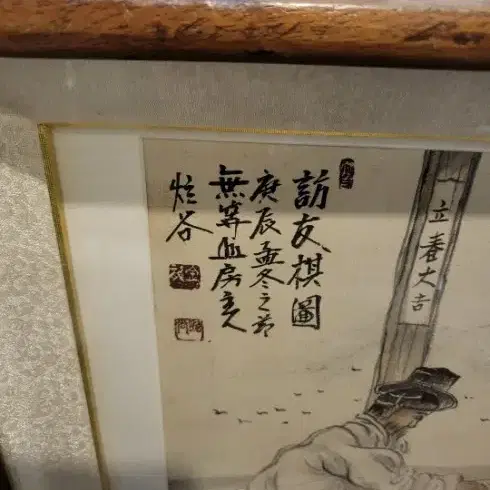 訪友棋圖
庚辰孟冬之節
無等山房主人
炫谷
立春大吉